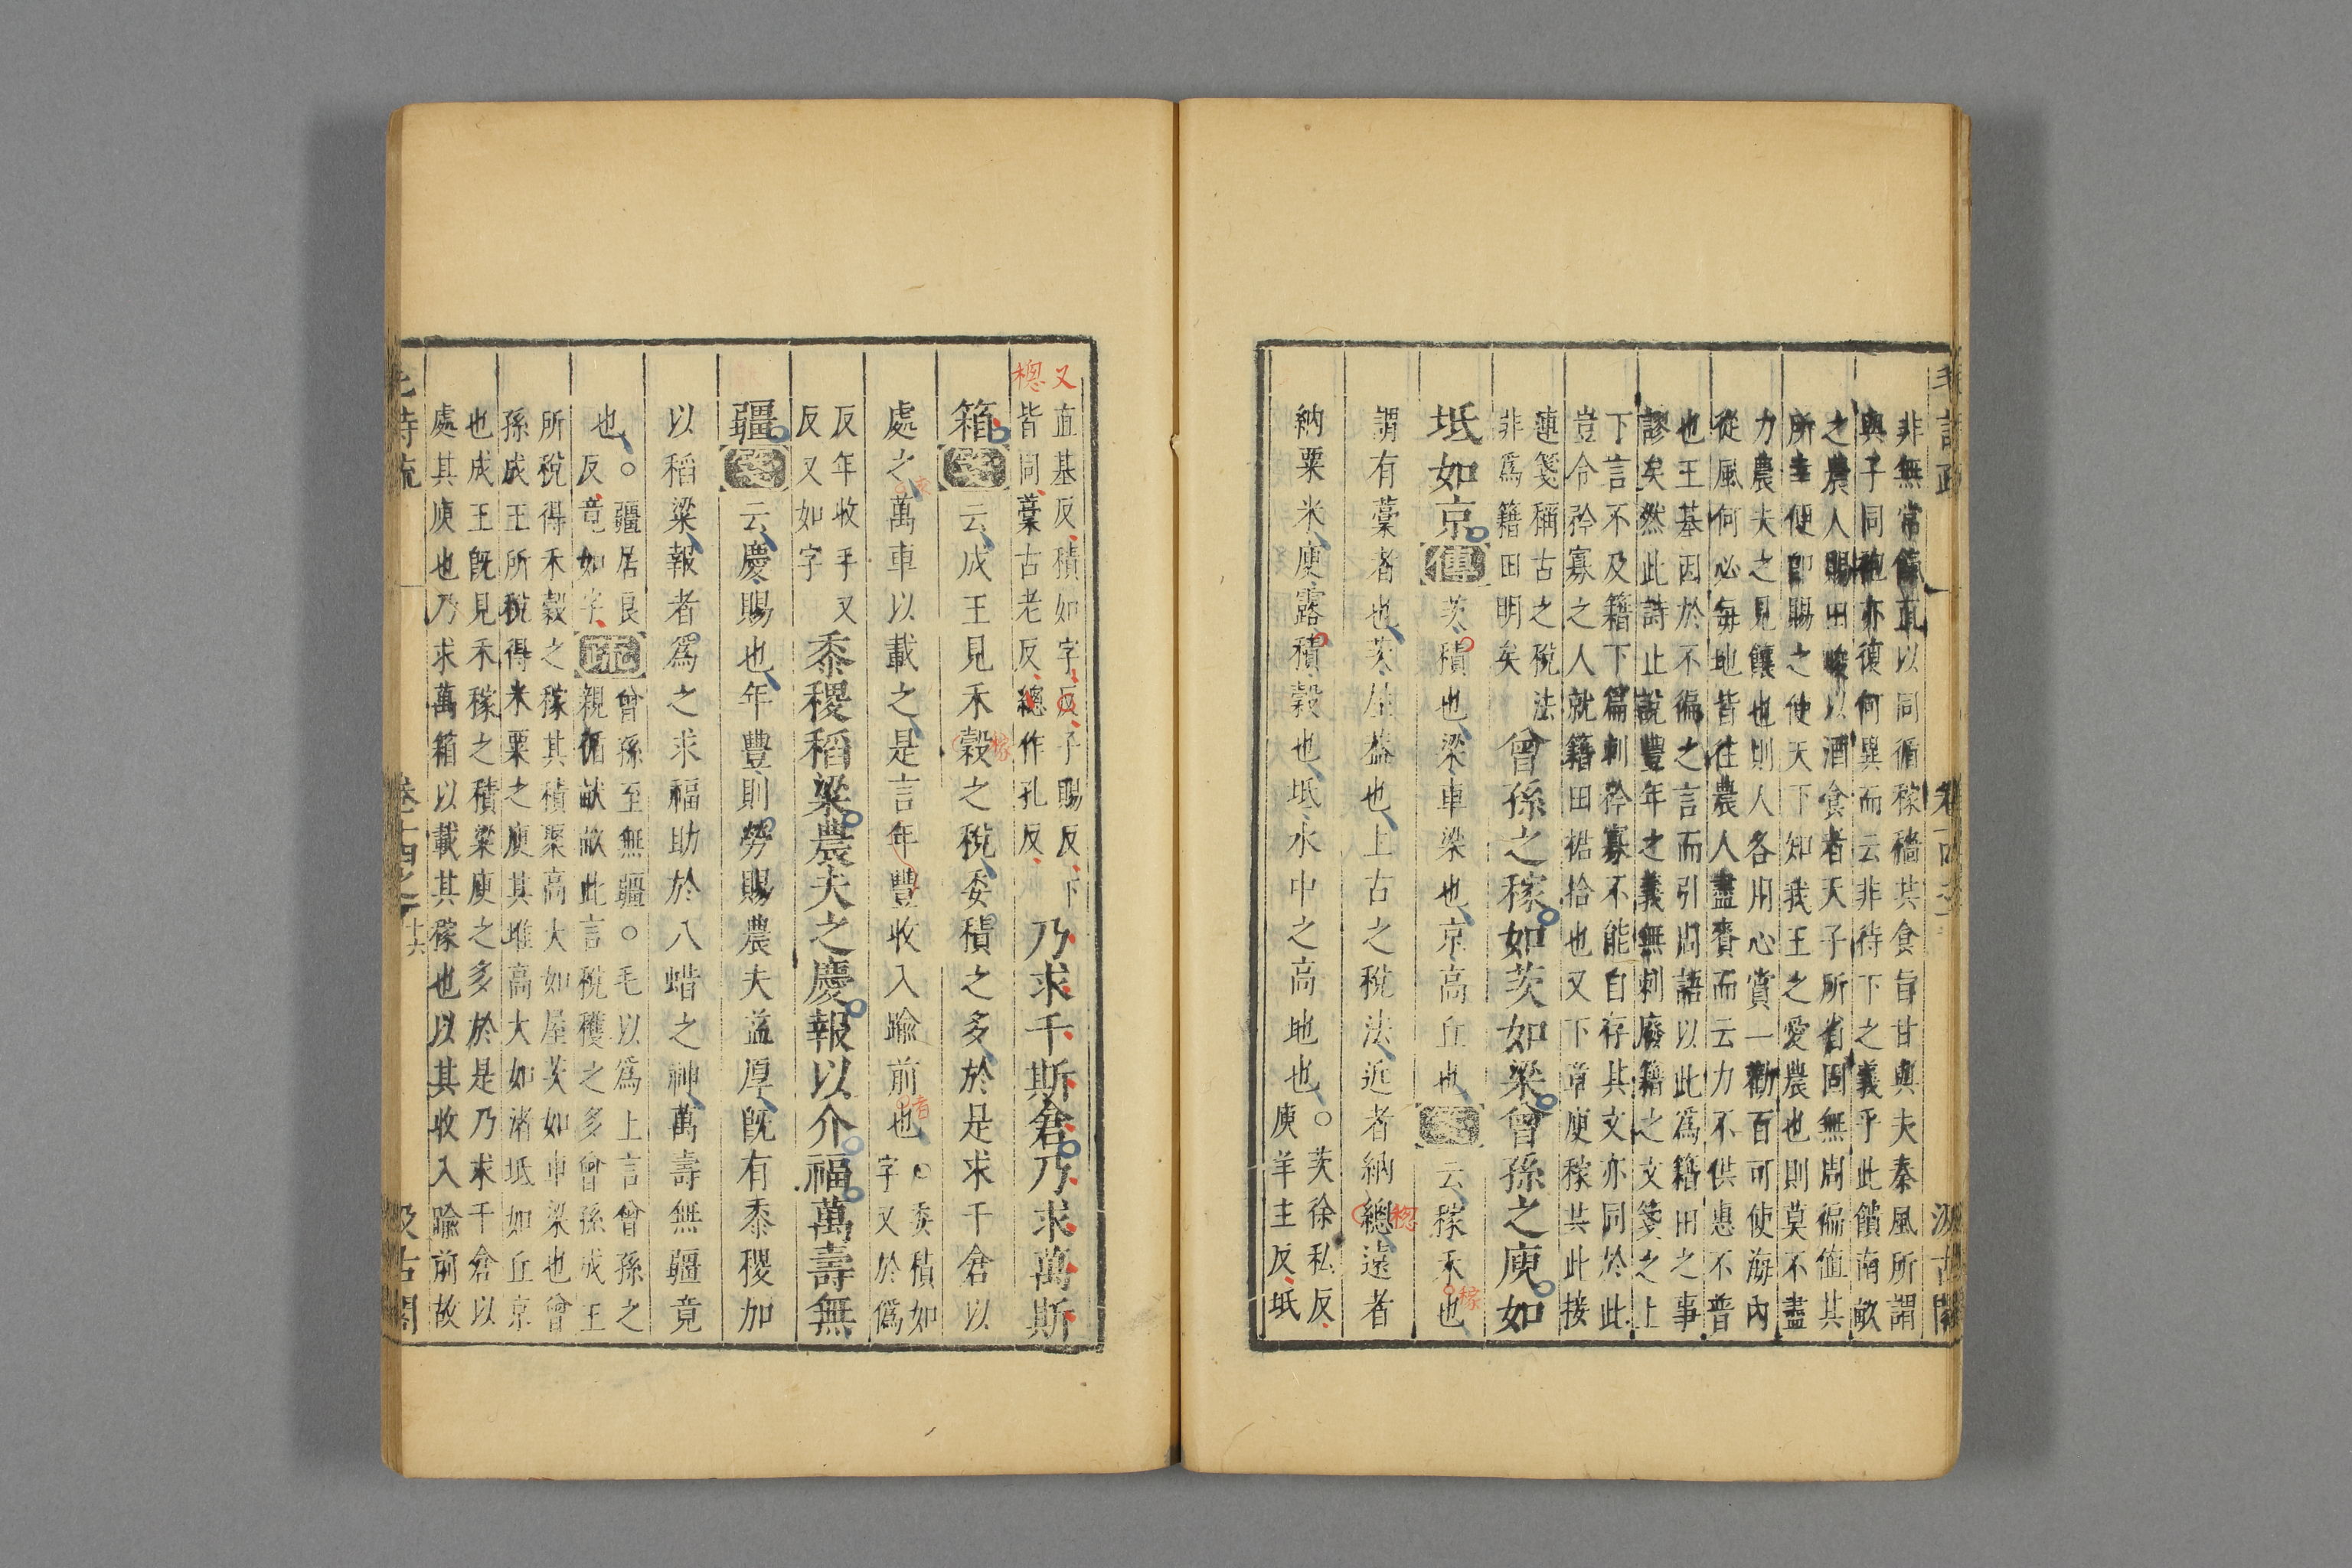 非無常饋直以同循稼穡其食旨甘與夫秦風所謂
與子同袍亦復何異而云非待下之義乎此饋南畝
之農人賜田畯以酒食者天子所省固無周徧值其
所幸便即賜之使天下知我王之愛農也則莫不盡
力農夫之見饟也則人各用心賞一勸百可使海內
從風何必每地皆往農人盡賚而云力不供惠不普
也王基因於不徧之言而引周語以此為籍田之事
謬矣然此詩止說豐年之義無刺廢籍之文箋之上
下言不及籍下篇刺矜寡不能自存其文亦同於此
豈令矜寡之人就籍田捃拾也又下章庾稼共此接
連箋稱古之稅法
非為籍田明矣
曾孫之稼如茨如梁曾孫之庾如
坻如京傳茨積也梁車梁也京高丘也箋云稼禾也
謂有藁者也茨屋蓋也上古之稅法近者納總遠者
納粟米庾露積穀也坻水中之高地也○茨徐私反
庾羊主反坻
直基反積如字反子賜反下
皆同藁古老反總作孔反
乃求千斯倉乃求萬斯
箱箋云成王見禾穀之稅委積之多於是求千倉以
處之萬車以載之是言年豐收入踰前也○委積如
字又於僞
反年收手又
反又如字
黍稷稻粱農夫之慶報以介福萬壽無
疆箋云慶賜也年豐則勞賜農夫益厚既有黍稷加
以稻粱報者爲之求福助於八蜡之神萬壽無疆竟
也○疆居良
反竟如字
疏曾孫至無疆○毛以爲上言曾孫之
親循畎畝此言稅穫之多曾孫成王
所稅得禾穀之稼其積聚高大如屋茨如車梁也曾
孫成王所稅得米粟之庾其堆高大如渚坻如丘京
也成王既見禾稼之積粱庾之多於是乃求千倉以
處其庾也乃求萬箱以載其稼也以其收入踰前故
卷十四之一
十六
汲古閣
又
總
稼
者
總
稼